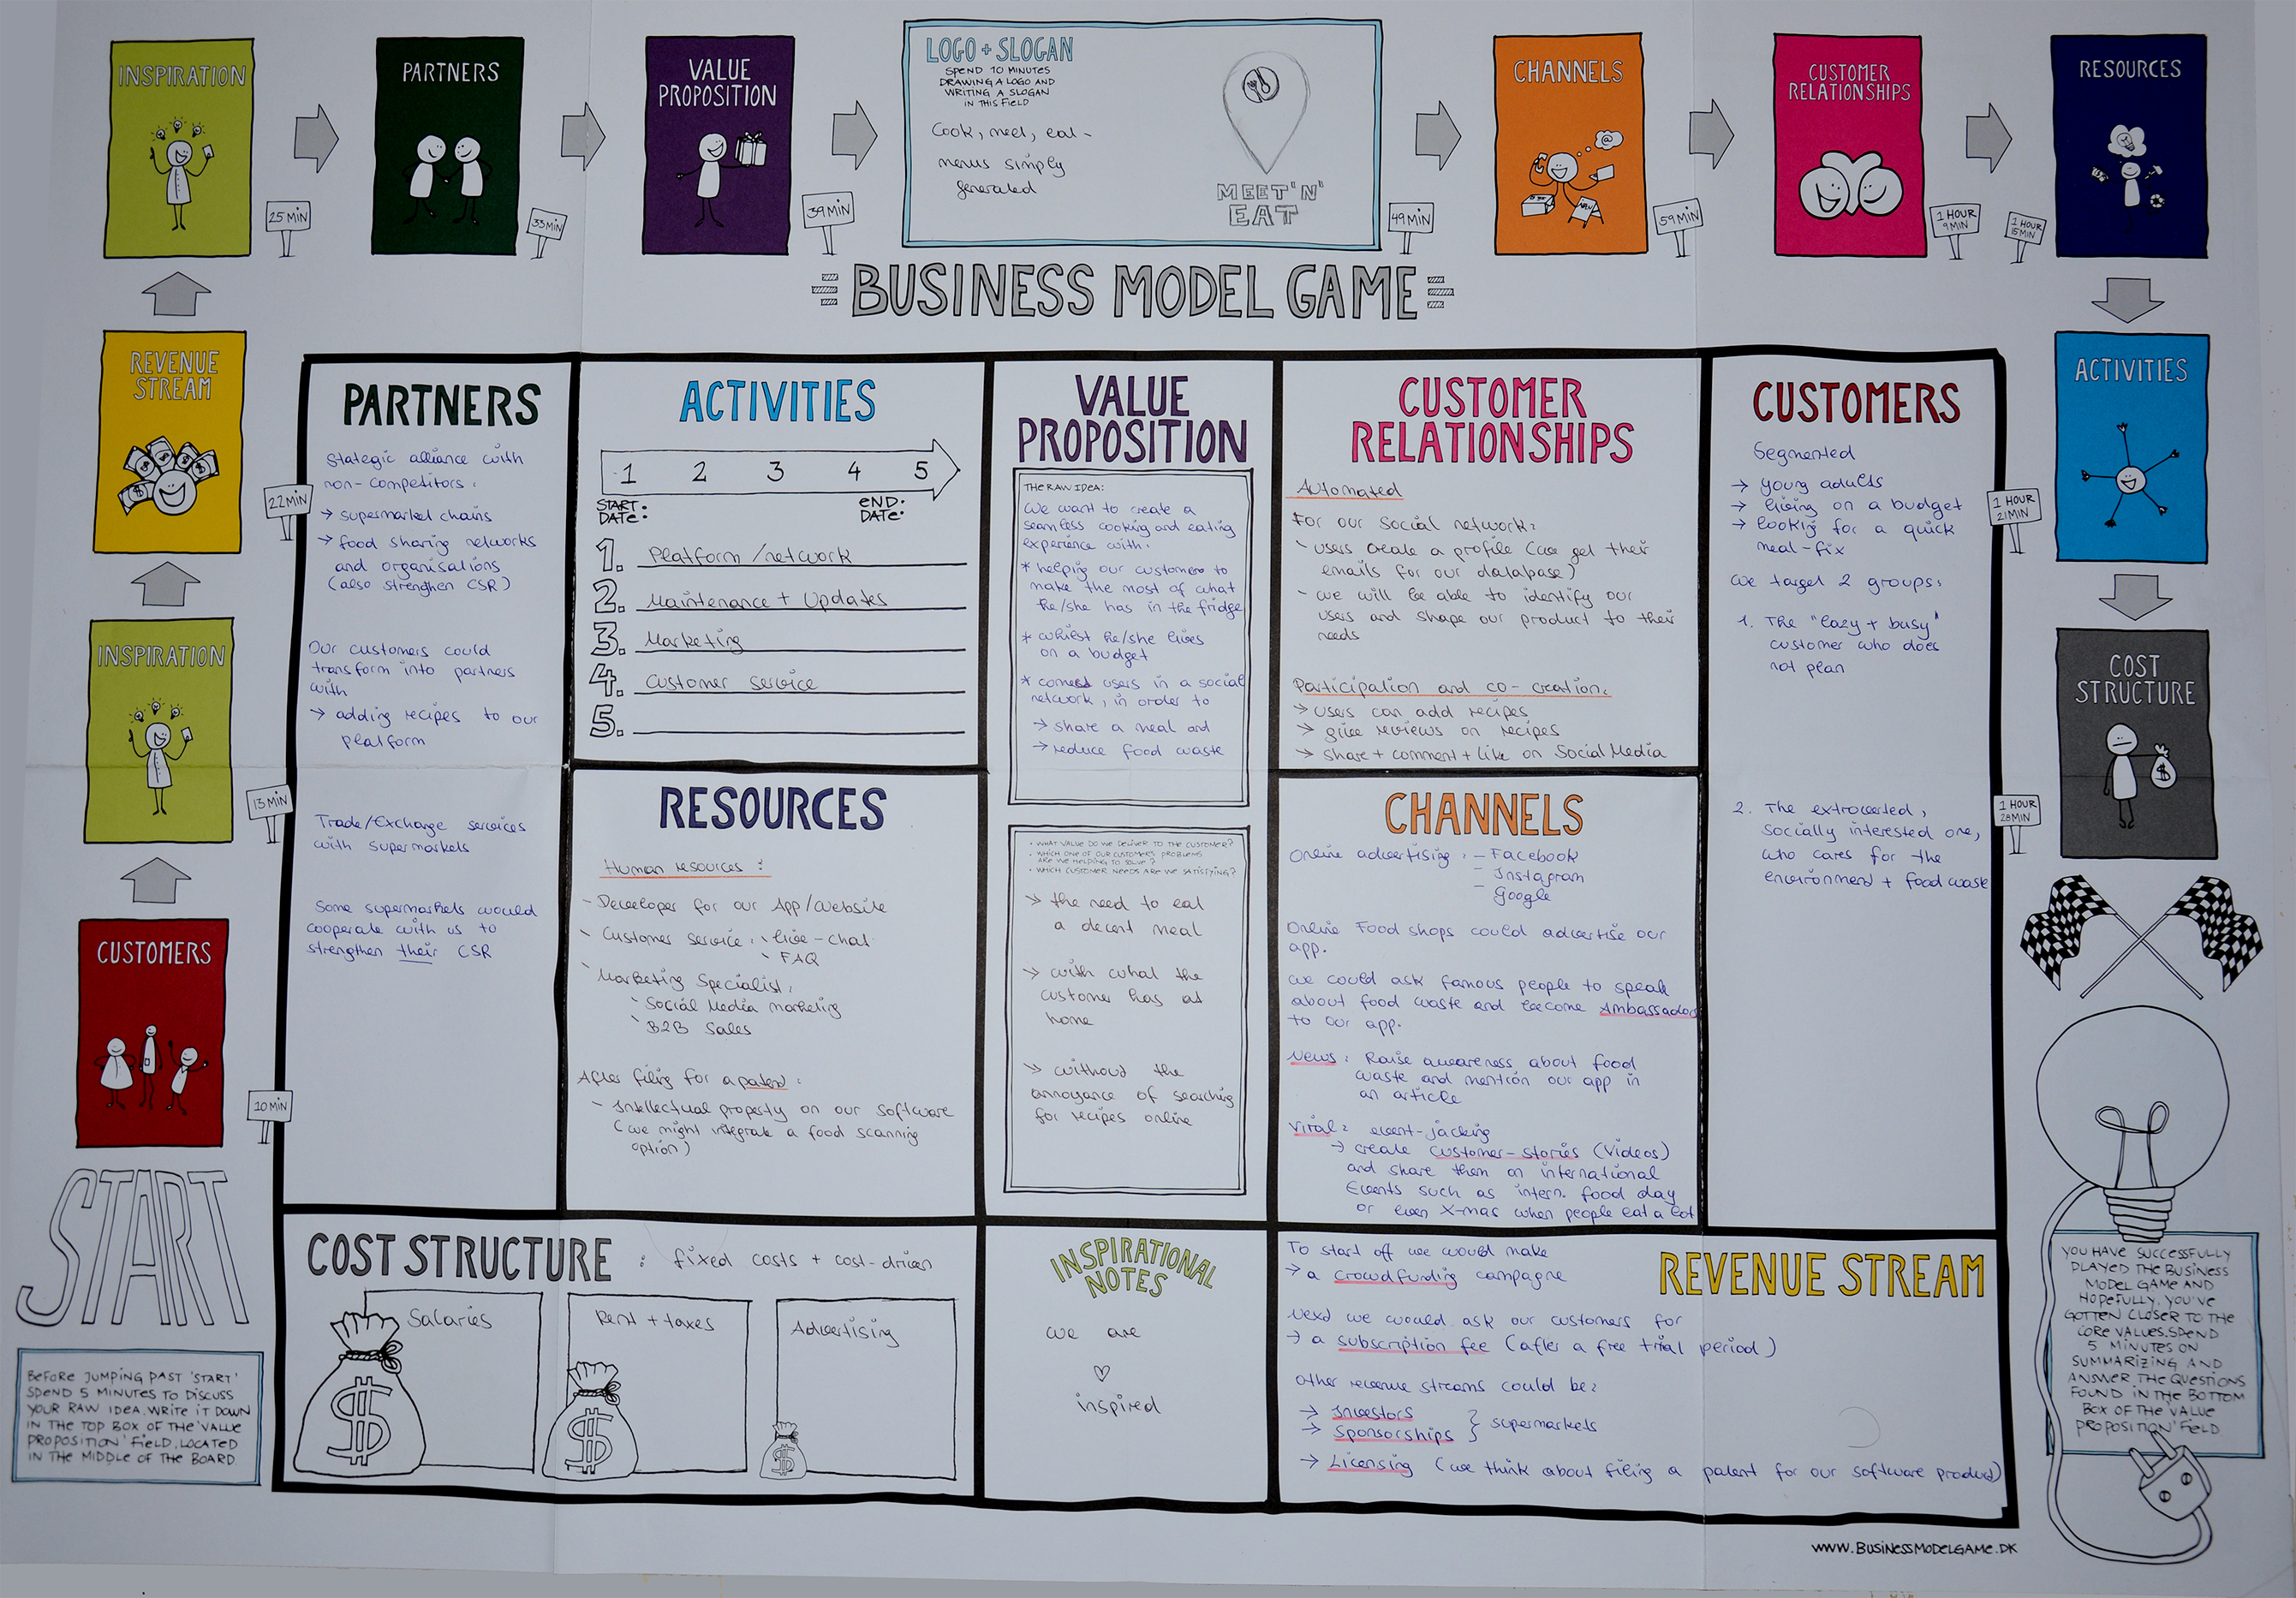 INSPIRATION
PARTNERS
VALUE
PROPOSITION
LOGO + SLOGAN
SPEND 10 MINUTES
DRAWING A LOGO AND
WRITING A SLOGAN
IN THIS FIELD
Cook, meet, eat -
menus simply
generated
MEET'N'
EAT
CHANNELS
CUSTOMER
RELATIONSHIPS
RESOURCES
25 MIN
33 MIN
39 MIN
49 MIN
59 MIN
1 HOUR
9 MIN
1 HOUR
15 MIN
BUSINESS MODEL GAME
REVENUE
STREAM
22 MIN
INSPIRATION
13 MIN
CUSTOMERS
10 MIN
START
BEFORE JUMPING PAST 'START'
SPEND 5 MINUTES TO DISCUSS
YOUR RAW IDEA. WRITE IT DOWN
IN THE TOP BOX OF THE 'VALUE
PROPOSITION' FIELD, LOCATED
IN THE MIDDLE OF THE BOARD.
PARTNERS
Stategic alliance with
non-competitors:
→ supermarket chains
→ food sharing networks
and organisations
(also strengthen CSR)
Our customers could
transform into partners
with
→ adding recipes to our
platform
Trade/Exchange services
with supermarkets
Some supermarkets would
cooperate with us to
strengthen their CSR
ACTIVITIES
1 2 3 4 5
START
DATE:
END
DATE:
1. Platform/network
2. Maintenance + Updates
3. Marketing
4. Customer service
5.
RESOURCES
Human resources:
- Developer for our App/Website
- Customer service: - live-chat
- FAQ
- Marketing Specialist:
- Social Media marketing
- B2B Sales
After filing for a patent:
- Intellectual property on our software
(we might integrate a food scanning
option)
VALUE
PROPOSITION
THE RAW IDEA:
We want to create a
seamless cooking and eating
experience with:
* helping our customer to
make the most of what
he/she has in the fridge
* whilst he/she lives
on a budget
* connect users in a social
network, in order to
→ share a meal and
→ reduce food waste
• WHAT VALUE DO WE DELIVER TO THE CUSTOMER?
• WHICH ONE OF OUR CUSTOMER'S PROBLEMS
ARE WE HELPING TO SOLVE?
• WHICH CUSTOMER NEEDS ARE WE SATISFYING?
→ the need to eat
a decent meal
→ with what the
customer has at
home
→ without the
annoyance of searching
for recipes online
CUSTOMER
RELATIONSHIPS
Automated
For our social network:
- users create a profile (we get their
emails for our database)
- we will be able to identify our
users and shape our product to their
needs
Participation and co-creation:
→ users can add recipes
→ give reviews on recipes
→ share + comment + like on Social Media
CHANNELS
Online advertising: - Facebook
- Instagram
- Google
Online Food shops could advertise our
app.
We could ask famous people to speak
about food waste and become Ambassador
to our app.
News: Raise awareness about food
waste and mention our app in
an article
Viral: event-jacking
→ create customer-stories (Videos)
and share them on international
Events such as intern. food day
or even X-mas when people eat a lot
CUSTOMERS
Segmented
→ young adults
→ living on a budget
→ looking for a quick
meal-fix
We target 2 groups:
1. The "lazy + busy"
customer who does
not plan
2. The extroverted,
socially interested one,
who cares for the
environment + food waste
COST STRUCTURE : fixed costs + cost-driven
Salaries
Rent + taxes
Advertising
INSPIRATIONAL
NOTES
we are
inspired
REVENUE STREAM
To start off we would make
→ a crowdfunding campagne
Next we would ask our customers for
→ a subscription fee (after a free trial period)
Other revenue streams could be:
→ Investors
→ Sponsorships } supermarkets
→ Licensing (we think about filing a patent for our software product)
ACTIVITIES
1 HOUR
21 MIN
COST
STRUCTURE
1 HOUR
28 MIN
YOU HAVE SUCCESSFULLY
PLAYED THE BUSINESS
MODEL GAME AND
HOPEFULLY, YOU'VE
GOTTEN CLOSER TO THE
CORE VALUES. SPEND
5 MINUTES ON
SUMMARIZING AND
ANSWER THE QUESTIONS
FOUND IN THE BOTTOM
BOX OF THE 'VALUE
PROPOSITION' FIELD
WWW.BUSINESSMODELGAME.DK